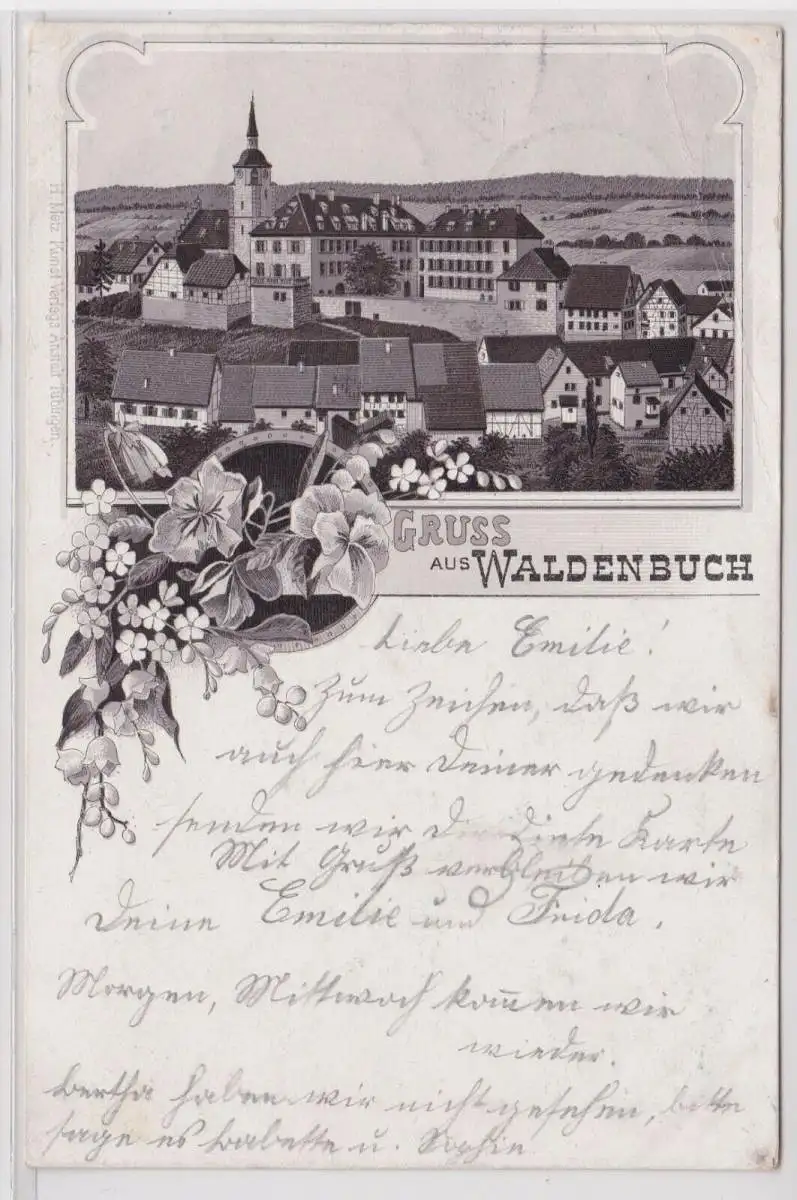 H. Metz Kunst Verlags Anstalt Tübingen.
GRUSS
AUS WALDENBUCH
Liebe Emilie!
Zum Zeichen, daß wir
auch hier Deiner gedenken
senden wir Diese Karte
Mit Gruß verbleiben wir
Deine Emilie und Frida.
Morgen, Mittwoch kom̄en wir
wieder.
Bertha haben wir nicht gesehen, bitte
sage es Babette u. Sophie